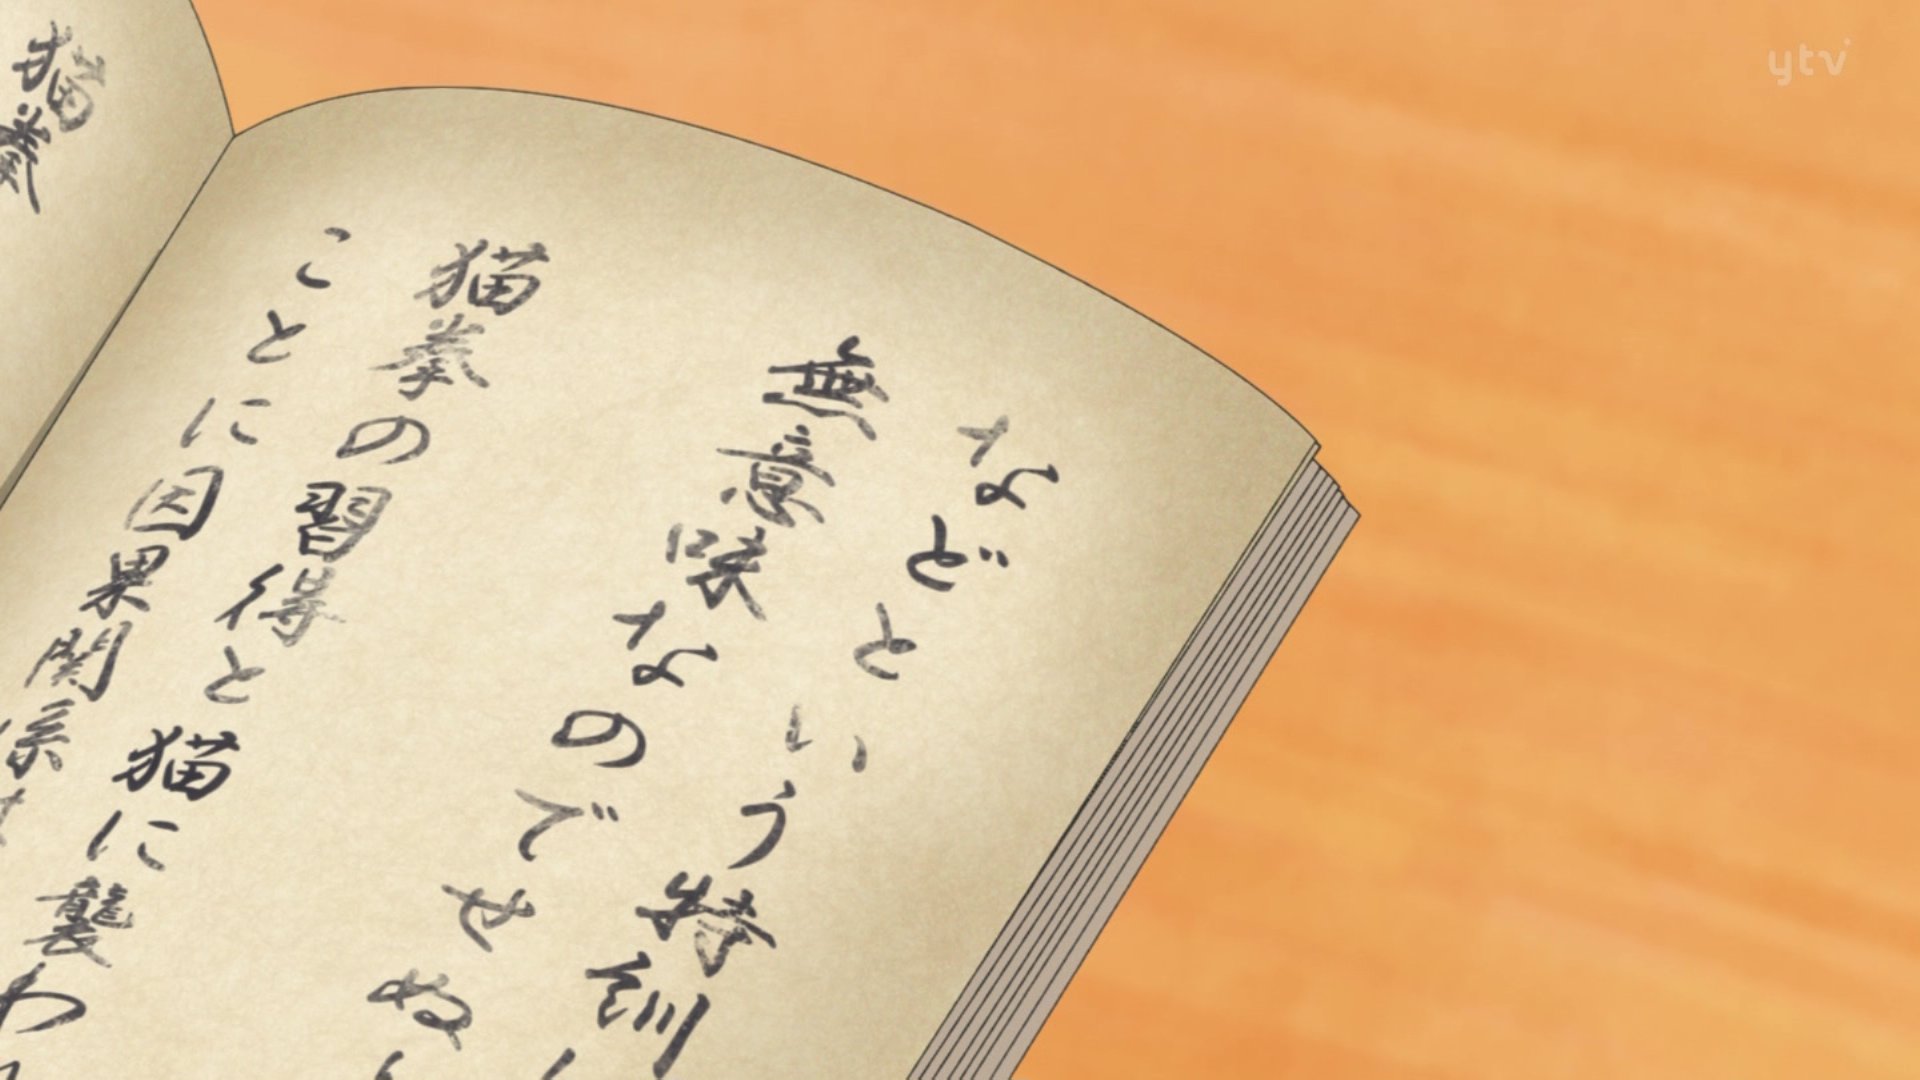 などという特訓
無意味なのでせぬ
猫拳の習得と猫に襲わ
ことに因果関係
猫拳
ytv